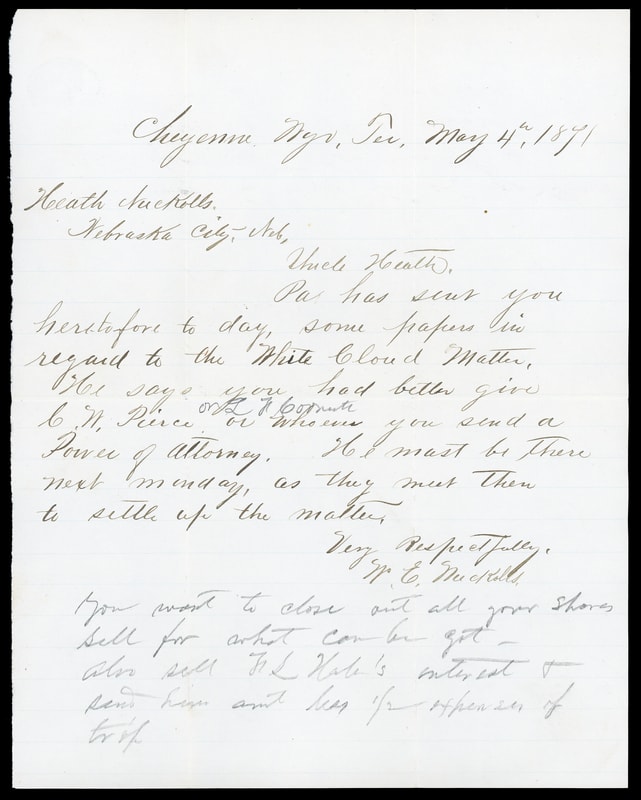 Cheyenne Wyo, Ter, May 4th, 1871
Heath Nuckolls.
Nebraska City, Neb,
Uncle Heath,
Pa has sent you
heretofore to day, some papers in
regard to the White Cloud Matter,
He says you had better give
or
C. W. Pierce or whoever you send a
Power of Attorney. He must be there
next monday, as they meet then
to settle up the matter,
Very Respectfully,
W. E. Nuckolls.
You want to close out all your shares
sell for what can be got –
also sell interest &
send him amt less 1/2 expenses of
trip